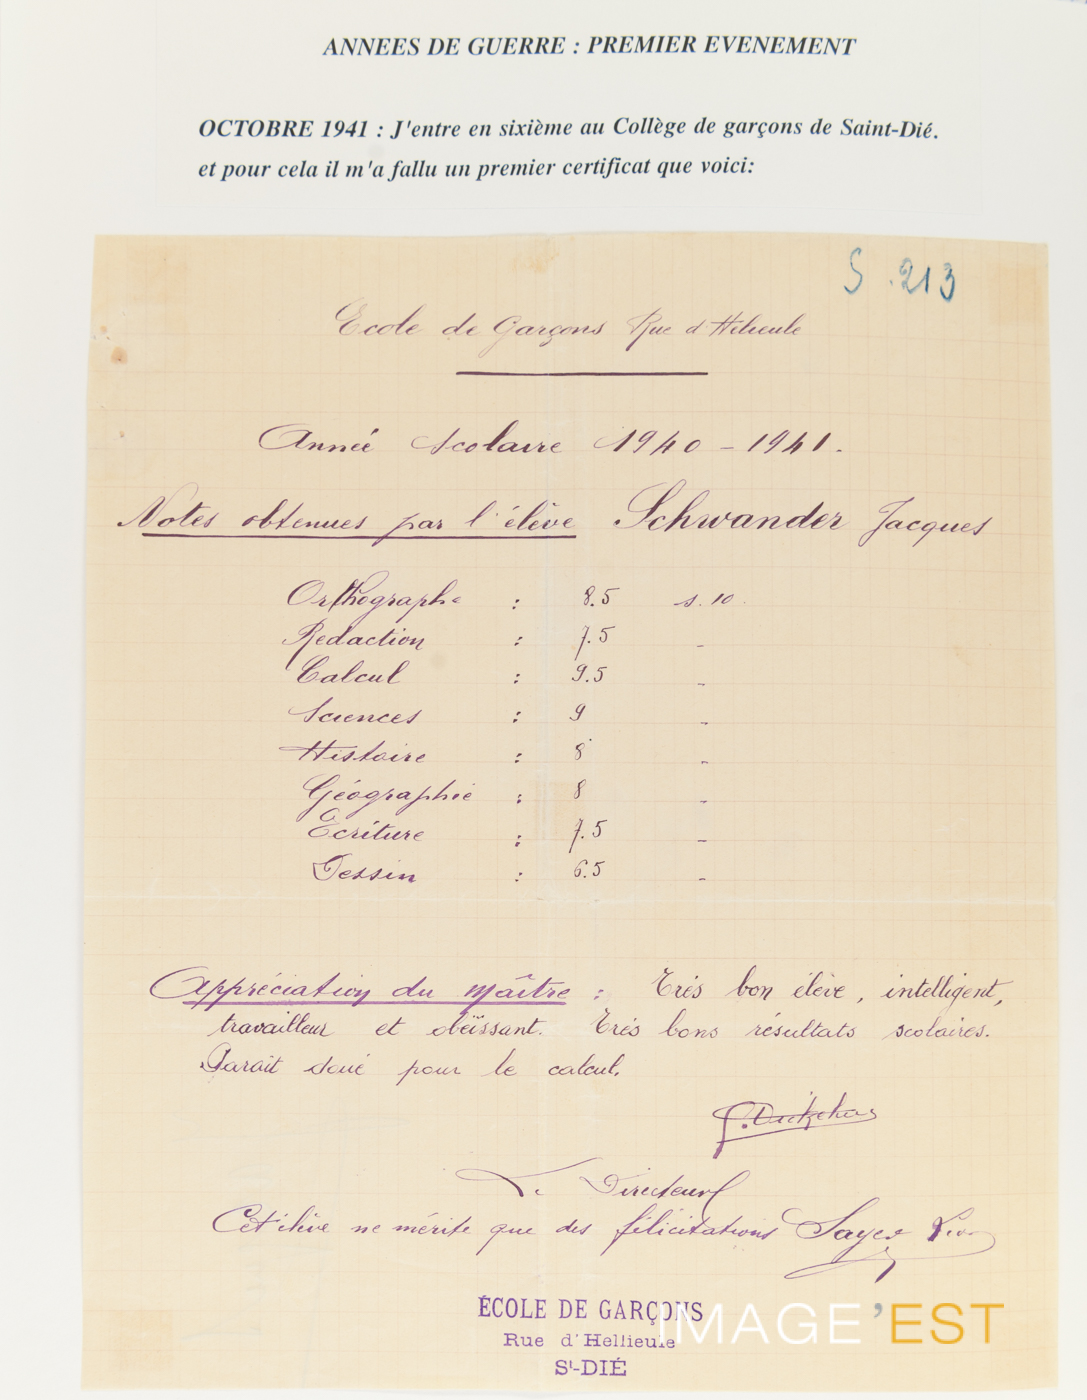 ANNEES DE GUERRE : PREMIER EVENEMENT
OCTOBRE 1941 : J'entre en sixième au Collège de garçons de Saint-Dié.
et pour cela il m'a fallu un premier certificat que voici:
S. 213
Ecole de Garçons Rue d'Hélieule
Année Scolaire 1940 - 1941.
Notes obtenues par l'élève Schwander Jacques
Orthographe : 8.5 s. 10.
Rédaction : 7.5 -
Calcul : 9.5 -
Sciences : 9 -
Histoire : 8 -
Géographie : 8 -
Ecriture : 7.5 -
Dessin : 6.5 -
Appréciation du maître : Très bon élève, intelligent,
travailleur et obéissant. Très bons résultats scolaires.
Parait doué pour le calcul.
Le Directeur
Cet élève ne mérite que des félicitations Sayer
ÉCOLE DE GARÇONS
Rue d'Hellieule
St-DIÉ
IMAGE'EST